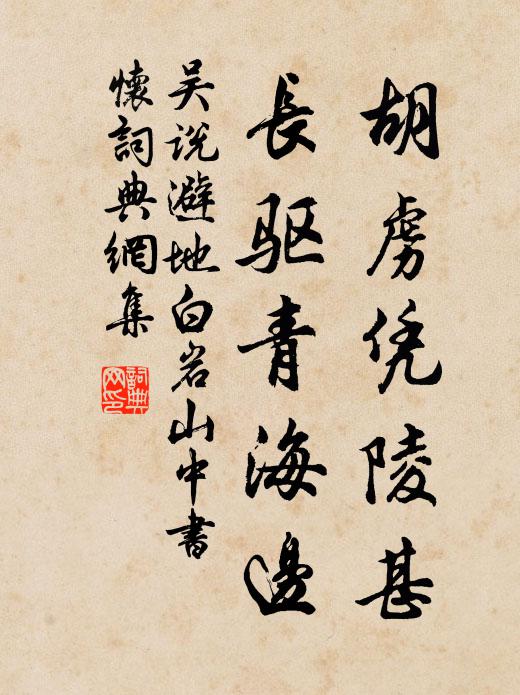 胡虏凭陵甚
長驱青海邊
吴说避地白岩山中書
懷詞典網集
詞典网印